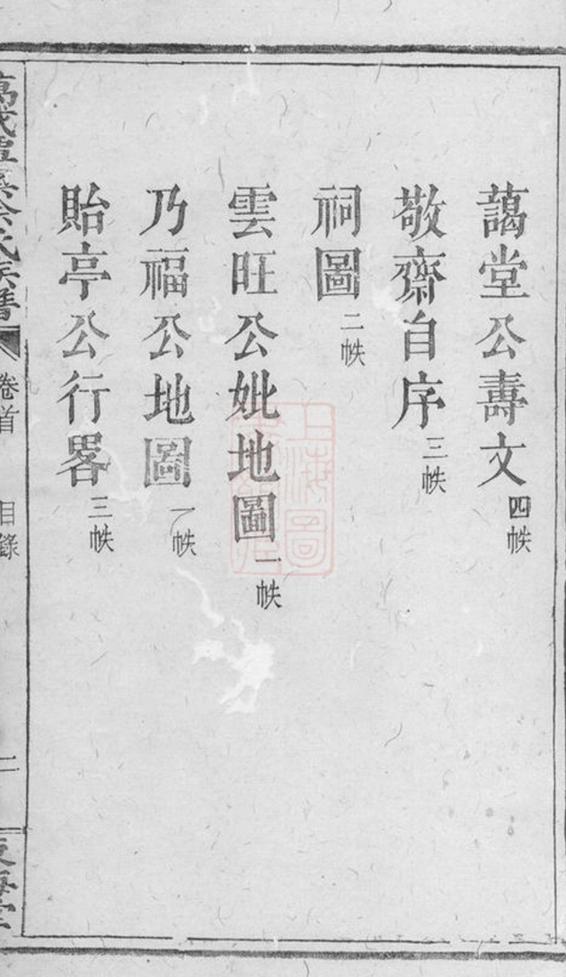 藹堂公壽文四帙
敬齋自序三帙
祠圖二帙
雲旺公妣地圖一帙
乃福公地圖一帙
貽亭公行畧三帙
氏族譜
卷首
目錄
二